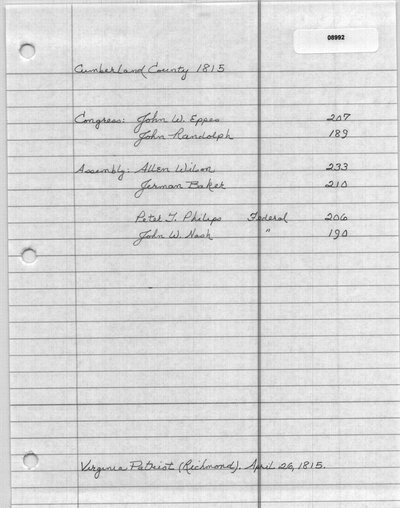 08992
Cumberland County 1815
Congress: John W. Eppes 207
John Randolph 189
Assembly: Allen Wilson 233
Jerman Baker 210
Peter T. Philips Federal 206
John W. Nash " 190
Virginia Patriot (Richmond). April 26, 1815.